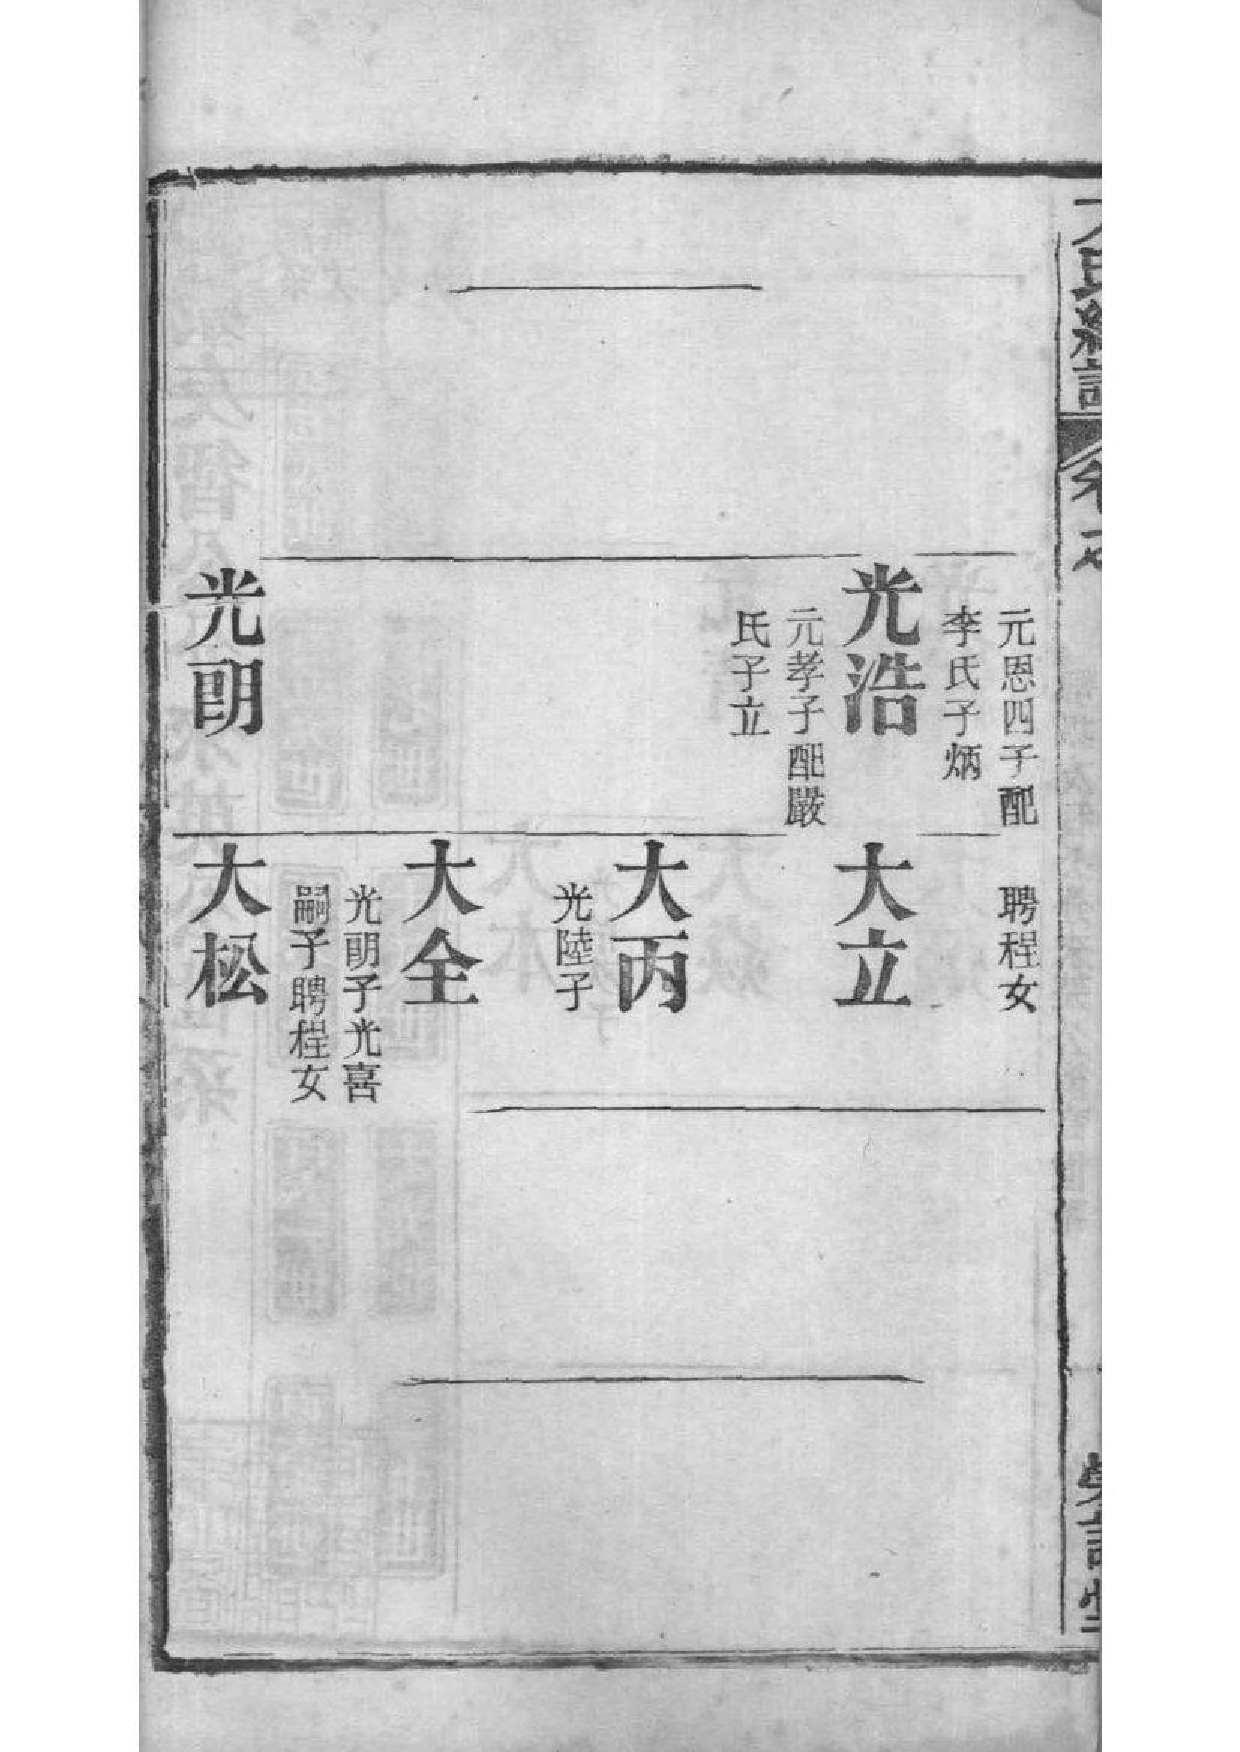 元恩四子配
李氏子炳
光浩
元孝子配嚴
氏子立
光朗
聘程女
大立
大丙
光陸子
大全
光朗子光喜
嗣子聘程女
大松